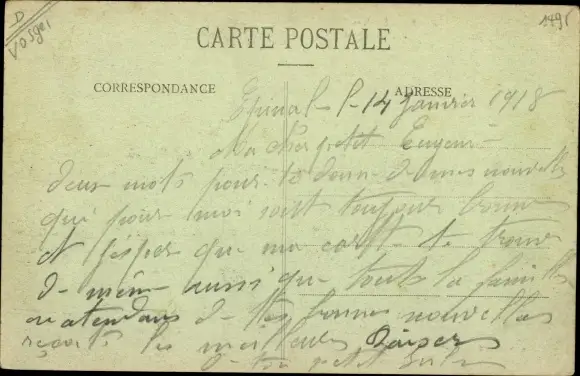 D
Vosges
1495
CARTE POSTALE
CORRESPONDANCE
ADRESSE
Epinal - l- 14 Janvier 1918
Mon cher petit
deux mots pour te donne de mes nouvelles
qui pour moi sont toujour bonne
et j'esper que ma carte te trouve
de même aussi que toute la famille
en atendans de tes bonnes nouvelles
reçoit les meilleures Baisers
De ton petit